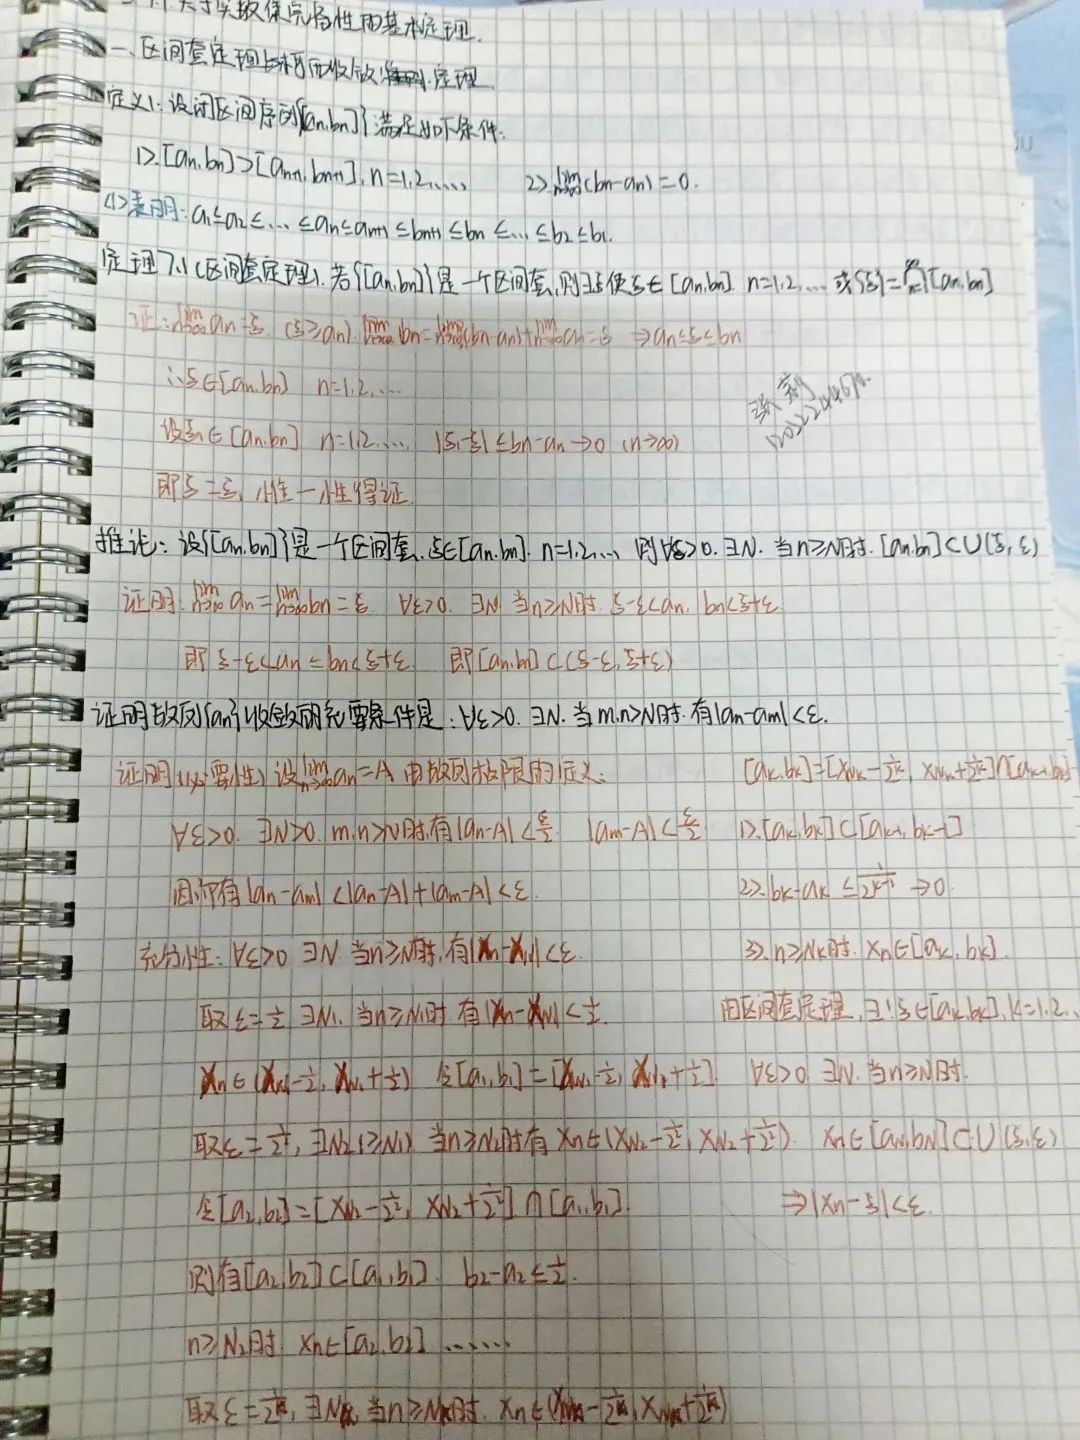 关于实数集完备性的基本定理.
一、区间套定理与柯西收敛定理.
定义1: 设闭区间序列{[an,bn]}满足如下条件:
1>.[an,bn]⊃[an+1,bn+1], n=1,2,…… 2>.lim n→∞(bn-an)=0.
(1)表明: a1≤a2≤…≤an≤an+1≤bn+1≤bn≤…≤b2≤b1.
定理7.1(区间套定理). 若{[an,bn]}是一个区间套,则∃ξ使ξ∈[an,bn]. n=1,2,… 或{ξ}=∩[an,bn]
证: lim n→∞ an=ξ. (ξ≥an). lim n→∞ bn=lim n→∞(bn-an)+lim n→∞ an=ξ ⇒an≤ξ≤bn
∴ξ∈[an,bn] n=1,2,…
设ξ1∈[an,bn] n=1,2,…, |ξ1-ξ|≤bn-an→0 (n→∞)
即ξ=ξ1 惟一性得证.
推论: 设{[an,bn]}是一个区间套, ξ∈[an,bn]. n=1,2,… 则∀ε>0. ∃N. 当n≥N时. [an,bn]⊂U(ξ,ε)
证明: lim n→∞ an=lim n→∞ bn=ξ. ∀ε>0. ∃N 当n≥N时. ξ-ε<an, bn<ξ+ε
即 ξ-ε<an≤bn<ξ+ε 即[an,bn]⊂(ξ-ε,ξ+ε)
证明数列{an}收敛的充要条件是: ∀ε>0. ∃N. 当m,n>N时. 有|an-am|<ε.
证明(必要性) 设lim n→∞ an=A 由数列极限的定义:
∀ε>0. ∃N>0. m,n>N时.有|an-A|<ε/2 |am-A|<ε/2
因而有|an-am|<|an-A|+|am-A|<ε.
充分性: ∀ε>0 ∃N 当n≥N时,有|xn-xN|<ε.
取ε=1/2 ∃N1. 当n≥N1时.有|xn-xN1|<1/2.
xn∈(xN1-1/2, xN1+1/2) 令[a1,b1]=[xN1-1/2, xN1+1/2].
取ε=1/2², ∃N2(≥N1) 当n≥N2时有 xn∈(xN2-1/2², xN2+1/2²).
令[a2,b2]=[xN2-1/2², xN2+1/2²]∩[a1,b1].
则有[a2,b2]⊂[a1,b1]. b2-a2≤1/2.
n≥N2时 xn∈[a2,b2] ……
取ε=1/2ᵏ, ∃Nk, 当n≥Nk时. xn∈(xNk-1/2ᵏ, xNk+1/2ᵏ)
[ak,bk]=[xNk-1/2ᵏ, xNk+1/2ᵏ]∩[ak-1,bk-1]
1>.[ak,bk]⊂[ak-1,bk-1]
2>.bk-ak≤1/2ᵏ⁻¹→0.
3>.n≥Nk时. xn∈[ak,bk].
由区间套定理, ∃!ξ∈[ak,bk], k=1,2,…
∀ε>0 ∃N. 当n≥N时.
xn∈[aN,bN]⊂U(ξ,ε)
⇒|xn-ξ|<ε.